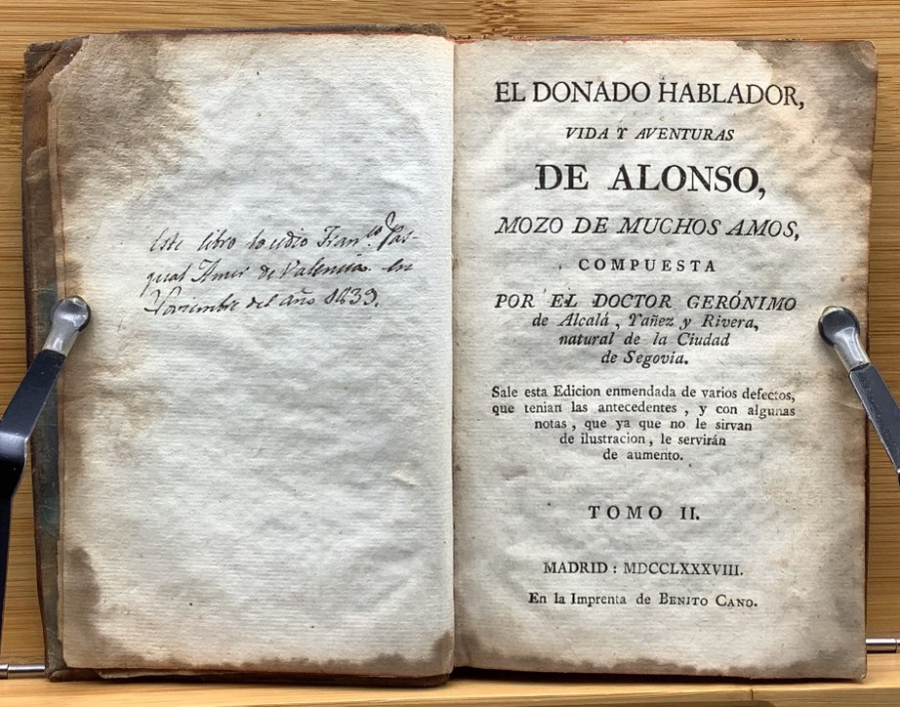 Este libro lo
Amer de Valencia. en
Noviembre del año 1839.
EL DONADO HABLADOR,
VIDA Y AVENTURAS
DE ALONSO,
MOZO DE MUCHOS AMOS,
COMPUESTA
POR EL DOCTOR GERÓNIMO
de Alcalá, Yañez y Rivera,
natural de la Ciudad
de Segovia.
Sale esta Edicion enmendada de varios defectos,
que tenian las antecedentes, y con algunas
notas, que ya que no le sirvan
de ilustracion, le servirán
de aumento.
TOMO II.
MADRID: MDCCLXXXVIII.
En la Imprenta de BENITO CANO.